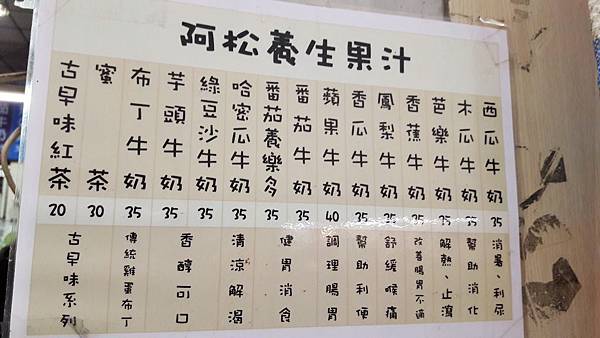 阿松養生果汁
西瓜牛奶
35
消暑、利尿
木瓜牛奶
35
幫助消化
芭樂牛奶
35
解熱、止瀉
香蕉牛奶
35
改善腸胃不適
鳳梨牛奶
35
舒緩喉痛
香瓜牛奶
35
幫助利便
蘋果牛奶
40
調理腸胃
番茄牛奶
35
番茄養樂多
35
健胃消食
哈密瓜牛奶
35
清涼解渴
綠豆沙牛奶
35
芋頭牛奶
35
香醇可口
布丁牛奶
35
傳統雞蛋布丁
蜜茶
30
古早味紅茶
20
古早味系列